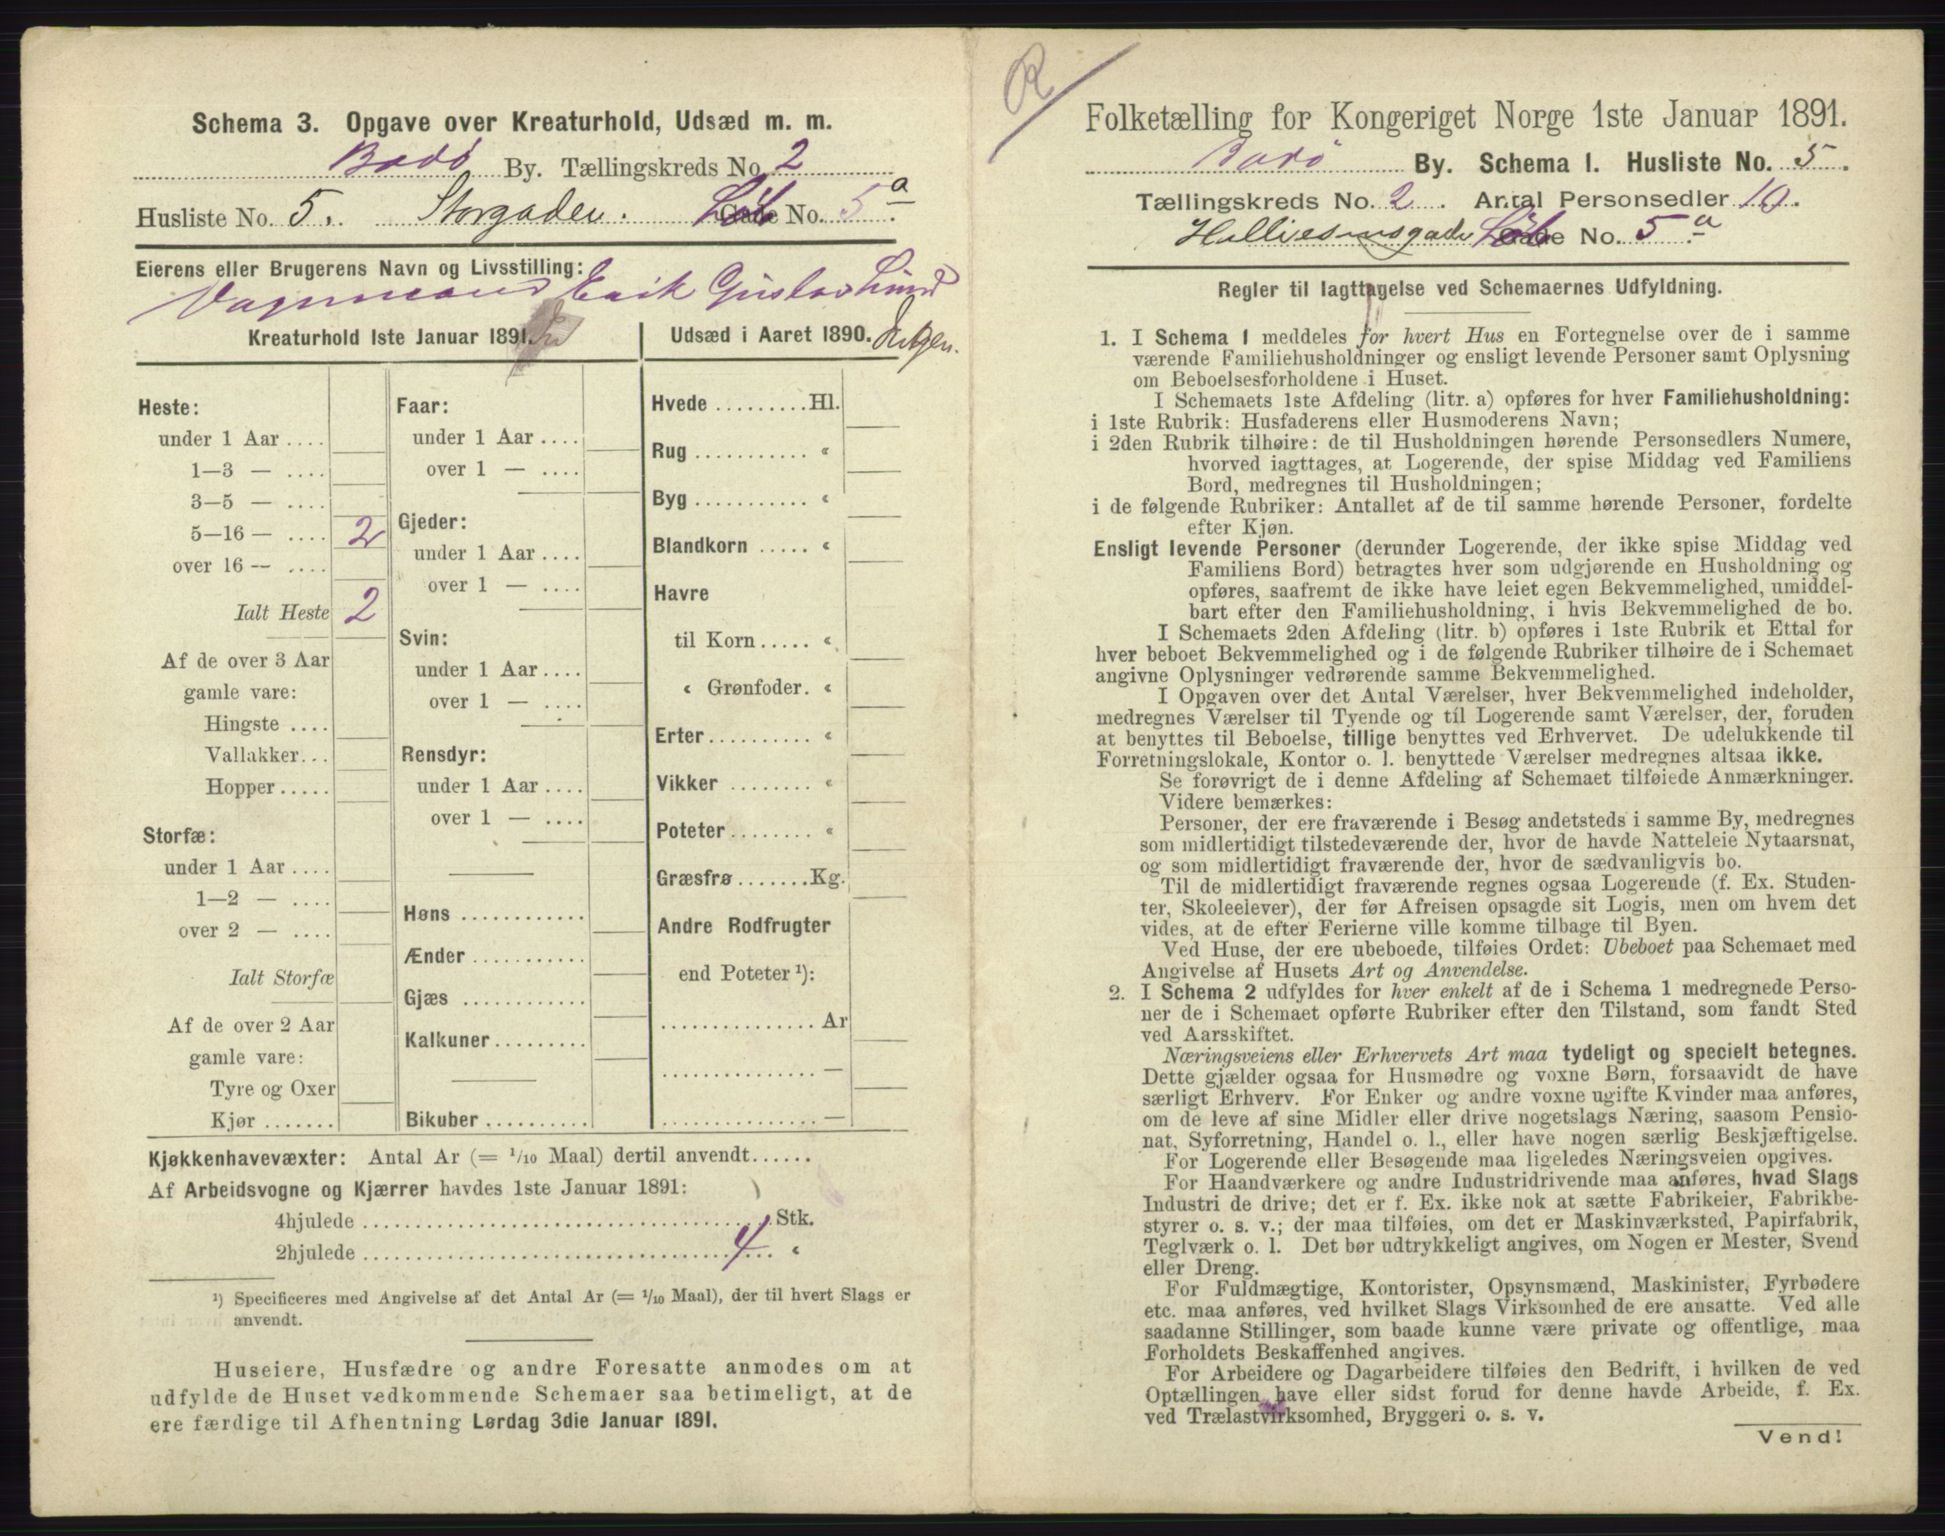 Schema 3. Opgave over Kreaturhold, Udsæd m. m.
Bodø By. Tællingskreds No. 2
Husliste No. 5. Storgaden. Gade No. 5 a
Eierens eller Brugerens Navn og Livsstilling:
Vognmand Erik Gustav Lund
Kreaturhold 1ste Januar 1891.
Heste:
under 1 Aar ....
1—3 — ....
3—5 — ....
5—16 — .... 2
over 16 — ....
Ialt Heste 2
Af de over 3 Aar
gamle vare:
Hingste ....
Vallakker...
Hopper .....
Storfæ:
under 1 Aar ....
1—2 — ....
over 2 — ....
Ialt Storfæ
Af de over 2 Aar
gamle vare:
Tyre og Oxer
Kjør .......
Faar:
under 1 Aar ....
over 1 — ....
Gjeder:
under 1 Aar ....
over 1 — ....
Svin:
under 1 Aar ....
over 1 — ....
Rensdyr:
under 1 Aar ....
over 1 — ....
Høns ............
Ænder ...........
Gjæs ............
Kalkuner.........
Bikuber ..........
Udsæd i Aaret 1890.
Hvede .........Hl.
Rug ........... «
Byg ........... «
Blandkorn ..... «
Havre
til Korn..... «
« Grønfoder. «
Erter.......... «
Vikker ........ «
Poteter........ «
Græsfrø.......Kg.
Andre Rodfrugter
end Poteter ¹):
............... Ar
............... —
............... —
Kjøkkenhavevæxter: Antal Ar (= 1/10 Maal) dertil anvendt......
Af Arbeidsvogne og Kjærrer havdes 1ste Januar 1891:
4hjulede ........................................ Stk.
2hjulede ........................................ 4 «
¹) Specificeres med Angivelse af det Antal Ar (= 1/10 Maal), der til hvert Slags er
anvendt.
Huseiere, Husfædre og andre Foresatte anmodes om at
udfylde de Huset vedkommende Schemaer saa betimeligt, at de
ere færdige til Afhentning Lørdag 3die Januar 1891.
R
Folketælling for Kongeriget Norge 1ste Januar 1891.
Bodø By. Schema 1. Husliste No. 5.
Tællingskreds No. 2. Antal Personsedler 10.
Gade No. 5 a
Regler til Iagttagelse ved Schemaernes Udfyldning.
1. I Schema 1 meddeles for hvert Hus en Fortegnelse over de i samme
værende Familiehusholdninger og ensligt levende Personer samt Oplysning
om Beboelsesforholdene i Huset.
I Schemaets 1ste Afdeling (litr. a) opføres for hver Familiehusholdning:
i 1ste Rubrik: Husfaderens eller Husmoderens Navn;
i 2den Rubrik tilhøire: de til Husholdningen hørende Personsedlers Numere,
hvorved iagttages, at Logerende, der spise Middag ved Familiens
Bord, medregnes til Husholdningen;
i de følgende Rubriker: Antallet af de til samme hørende Personer, fordelte
efter Kjøn.
Ensligt levende Personer (derunder Logerende, der ikke spise Middag ved
Familiens Bord) betragtes hver som udgjørende en Husholdning og
opføres, saafremt de ikke have leiet egen Bekvemmelighed, umiddel-
bart efter den Familiehusholdning, i hvis Bekvemmelighed de bo.
I Schemaets 2den Afdeling (litr. b) opføres i 1ste Rubrik et Ettal for
hver beboet Bekvemmelighed og i de følgende Rubriker tilhøire de i Schemaet
angivne Oplysninger vedrørende samme Bekvemmelighed.
I Opgaven over det Antal Værelser, hver Bekvemmelighed indeholder,
medregnes Værelser til Tyende og til Logerende samt Værelser, der, foruden
at benyttes til Beboelse, tillige benyttes ved Erhvervet. De udelukkende til
Forretningslokale, Kontor o. l. benyttede Værelser medregnes altsaa ikke.
Se forøvrigt de i denne Afdeling af Schemaet tilføiede Anmærkninger.
Videre bemærkes:
Personer, der ere fraværende i Besøg andetsteds i samme By, medregnes
som midlertidigt tilstedeværende der, hvor de havde Natteleie Nytaarsnat,
og som midlertidigt fraværende der, hvor de sædvanligvis bo.
Til de midlertidigt fraværende regnes ogsaa Logerende (f. Ex. Studen-
ter, Skoleelever), der før Afreisen opsagde sit Logis, men om hvem det
vides, at de efter Ferierne ville komme tilbage til Byen.
Ved Huse, der ere ubeboede, tilføies Ordet: Ubeboet paa Schemaet med
Angivelse af Husets Art og Anvendelse.
2. I Schema 2 udfyldes for hver enkelt af de i Schema 1 medregnede Perso-
ner de i Schemaet opførte Rubriker efter den Tilstand, som fandt Sted
ved Aarsskiftet.
Næringsveiens eller Erhvervets Art maa tydeligt og specielt betegnes.
Dette gjælder ogsaa for Husmødre og voxne Børn, forsaavidt de have
særligt Erhverv. For Enker og andre voxne ugifte Kvinder maa anføres,
om de leve af sine Midler eller drive nogetslags Næring, saasom Pensio-
nat, Syforretning, Handel o. l., eller have nogen særlig Beskjæftigelse.
For Logerende eller Besøgende maa ligeledes Næringsveien opgives.
For Haandværkere og andre Industridrivende maa anføres, hvad Slags
Industri de drive; det er f. Ex. ikke nok at sætte Fabrikeier, Fabrikbe-
styrer o. s. v.; der maa tilføies, om det er Maskinværksted, Papirfabrik,
Teglværk o. l. Det bør udtrykkeligt angives, om Nogen er Mester, Svend
eller Dreng.
For Fuldmægtige, Kontorister, Opsynsmænd, Maskinister, Fyrbødere
etc. maa anføres, ved hvilket Slags Virksomhed de ere ansatte. Ved alle
saadanne Stillinger, som baade kunne være private og offentlige, maa
Forholdets Beskaffenhed angives.
For Arbeidere og Dagarbeidere tilføies den Bedrift, i hvilken de ved
Optællingen have eller sidst forud for denne havde Arbeide, f. Ex.
ved Trælastvirksomhed, Bryggeri o. s. v.
Vend!